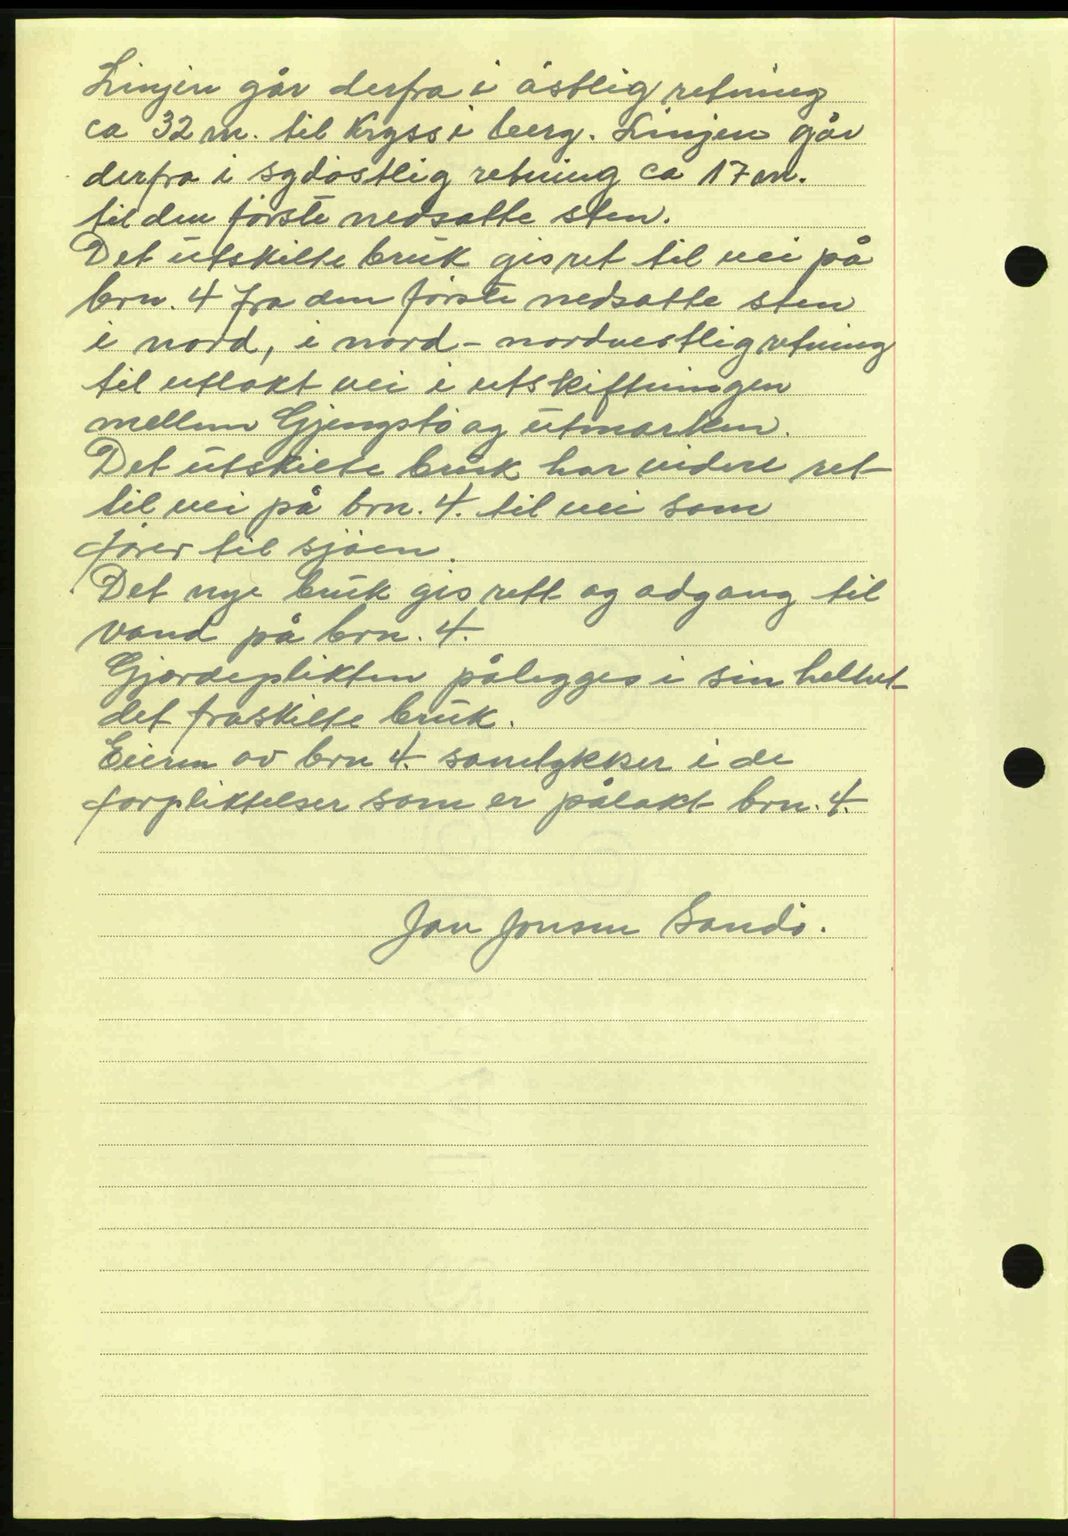 Linjen går derfra i östlig retning
ca 32 m. til Kryss i berg. Linjen går
derfra i sydöstlig retning ca 17 m.
til den förste nedsatte sten.
Det utskilte bruk gis ret til vei på
brn. 4 fra den förste nedsatte sten
i nord, i nord - nordvestlig retning
til utlakt vei i utskiftningen
mellem Gjengstö og utmarken.
Det utskilte bruk har videre ret
til vei på brn. 4. til vei som
förer til sjöen.
Det nye bruk gis rett og adgang til
vand på brn. 4.
Gjerdeplikten pålegges i sin helhet
det fraskilte bruk.
Eieren av brn 4. samtykker i de
forpliktelser som er pålakt brn. 4.
Jan Jonsen Sandö.